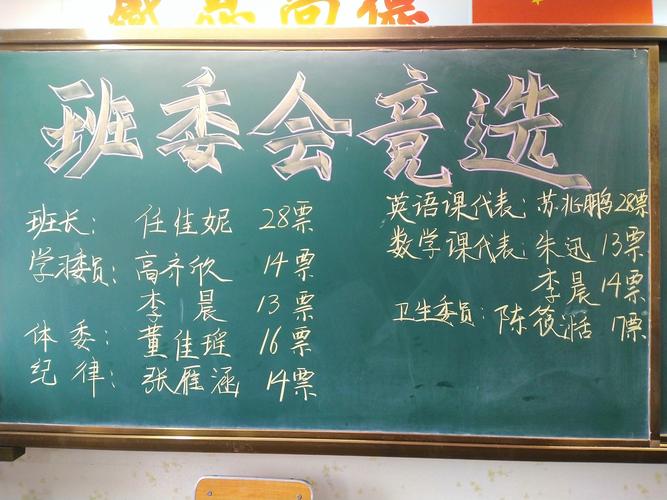 班委会竟选
班长：任佳妮 28票
学习委员：高齐欣 14票
李晨 13票
体委：董佳瑶 16票
纪律：张雁涵 14票
英语课代表：苏兆鹏 28票
数学课代表：朱迅 13票
李晨 14票
卫生委员：陈筱湉 17票